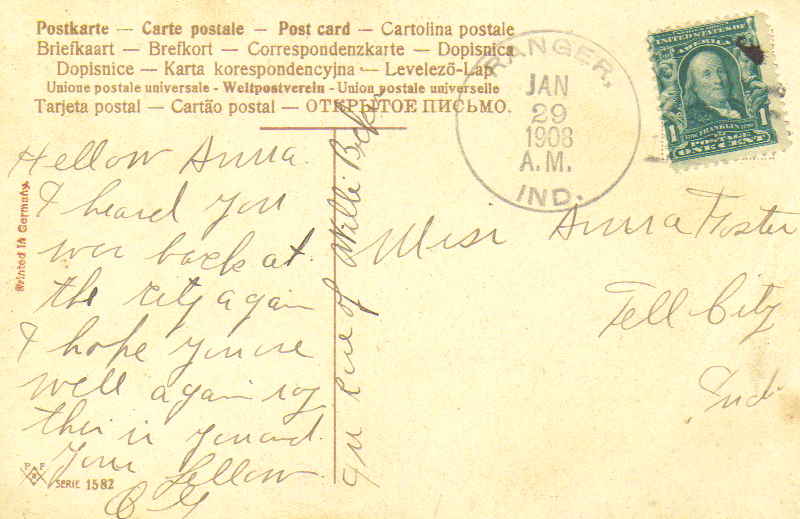 Postkarte — Carte postale — Post card — Cartolina postale
Briefkaart — Brefkort — Correspondenzkarte — Dopisnica
Dopisnice — Karta korespondencyjna — Levelező-Lap
Unione postale universale - Weltpostverein - Union postale universelle
Tarjeta postal — Cartão postal — ОТКРЫТОЕ ПИСЬМО.
RANGER,
JAN
29
1908
A.M.
IND.
UNITED STATES OF
AMERICA
1 FRANKLIN 1
POSTAGE
ONE CENT
Hellow Anna.
I heard you
wer back at
the city again
I hope you are
well again
this is you and
your fellow
Miss Anna Foster
Tell City
Ind.
of Willi
Printed in Germany.
P F
SERIE 1582